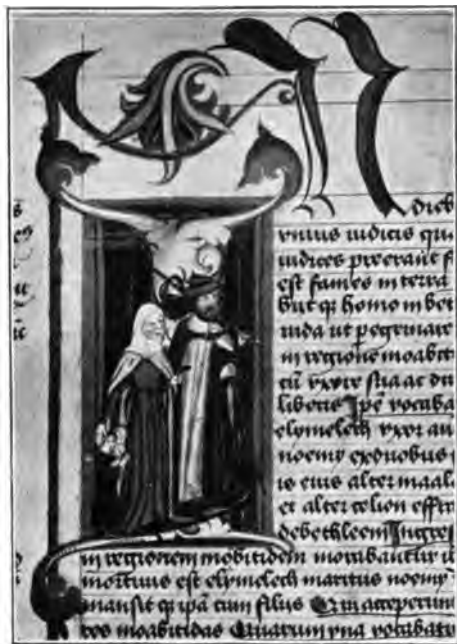 IN dieb
vnius iudicis qui
iudices preerant f
est fames in terra
q homo in bet
iuda ut pegrinare
in regione moabit
cū vxore sua ac du
liberis Ipē vocaba
elymelech vxor au
noemy exduobus
is eius alter maal
et alter celion effra
debethleem Ingres
in regionem mobitidem morabantur i
mortuus est elymelech maritus noemy
mansit q ipā cum filiis Qui acceperunt
moabitidas Quarum vna vocabat